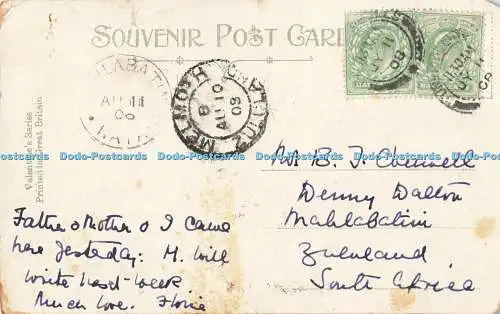 SOUVENIR POST CARD
Valentine's Series
Printed in Great Britain
AU 11
08
MELMOTH
AU 10
08
ZULULAND
JY 11
08
11.50AM
JY 11
08
Dodo-Postcards Dodo-Postcards Dodo-Postcards Dodo-Postcards Dodo-Postcards
Mr B. J.
Denny Dalton
Mahlabatini
Zululand
South Africa
Father & Mother & I came
here yesterday: M. will
write next week
Much love.